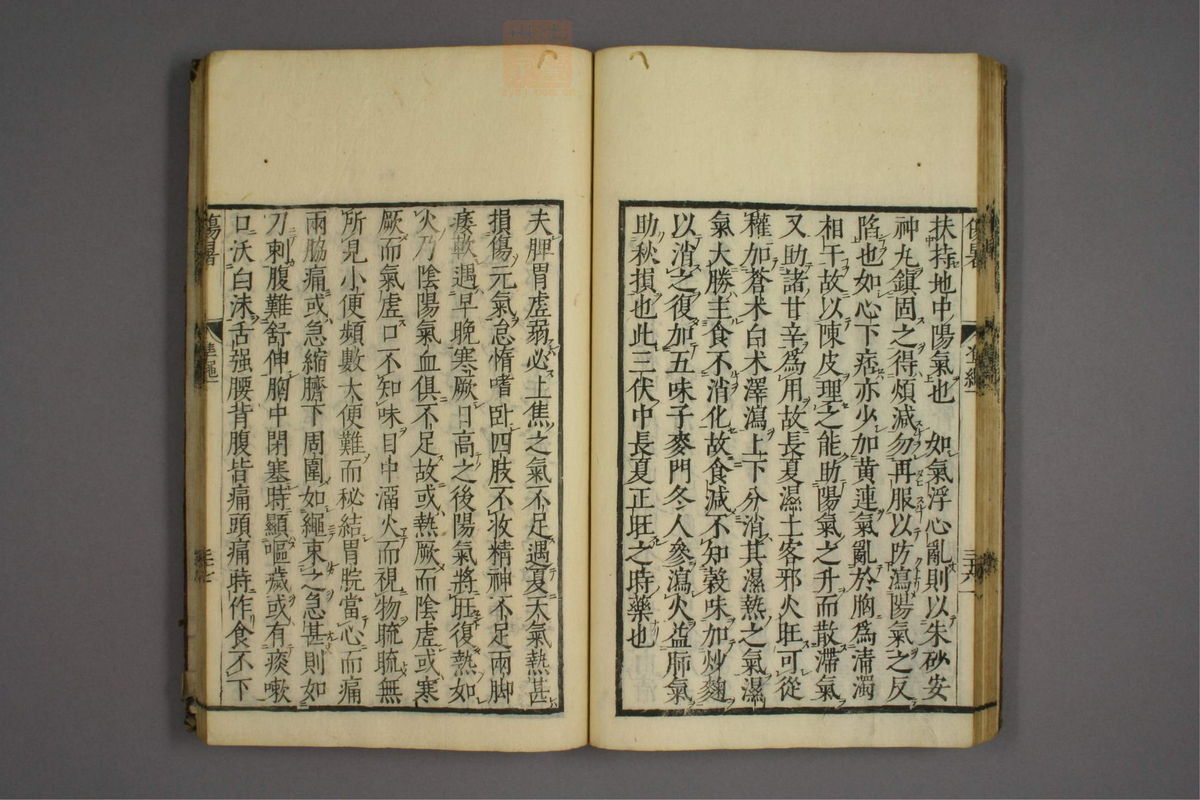 扶持地中陽氣也　如氣浮心亂則以朱砂安
神丸鎮固之得煩減勿再服以防瀉陽氣之反
陷也如心下痞亦少加黃連氣亂於胸爲清濁
相干故以陳皮理之能助陽氣之升而散滯氣
又助諸甘辛爲用故長夏濕土客邪火旺可從
權加蒼朮白朮澤瀉上下分消其濕熱之氣濕
氣大勝主食不消化故食減不知穀味加炒麴
以消之復加五味子麥門冬人參瀉火益肺氣
助秋損也此三伏中長夏正旺之時藥也
夫脾胃虛弱必上焦之氣不足遇夏天氣熱甚
損傷元氣怠惰嗜卧四肢不收精神不足兩脚
痿軟遇早晚寒厥日高之後陽氣將旺復熱如
火乃陰陽氣血俱不足故或熱厥而陰虛或寒
厥而氣虛口不知味目中溜火而視物䀮䀮無
所見小便頻數大便難而秘結胃脘當心而痛
兩脇痛或急縮臍下周圍如繩束之急甚則如
刀刺腹難舒伸胸中閉塞時顯嘔噦或有痰嗽
口沃白沫舌强腰背腹皆痛頭痛時作食不下
傷暑